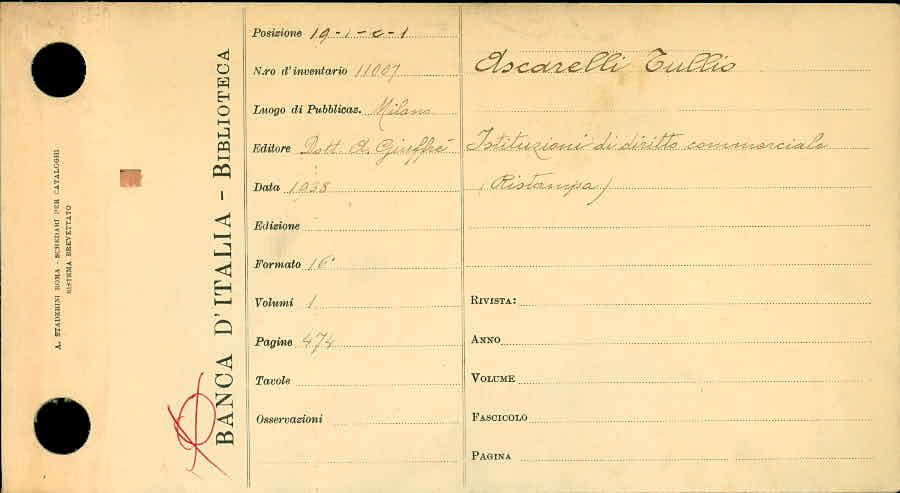 A. STADERINI ROMA - SCHEDARI PER CATALOGHI
SISTEMA BREVETTATO
BANCA D'ITALIA - BIBLIOTECA
Posizione 19-1-c-1
N.ro d'inventario 11007
Luogo di Pubblicaz. Milano
Editore Dott. A. Giuffrè
Data 1938
Edizione
Formato 16°
Volumi 1
Pagine 474
Tavole
Osservazioni
Ascarelli Tullio
Istituzioni di diritto commerciale
(Ristampa)
RIVISTA:
ANNO
VOLUME
FASCICOLO
PAGINA